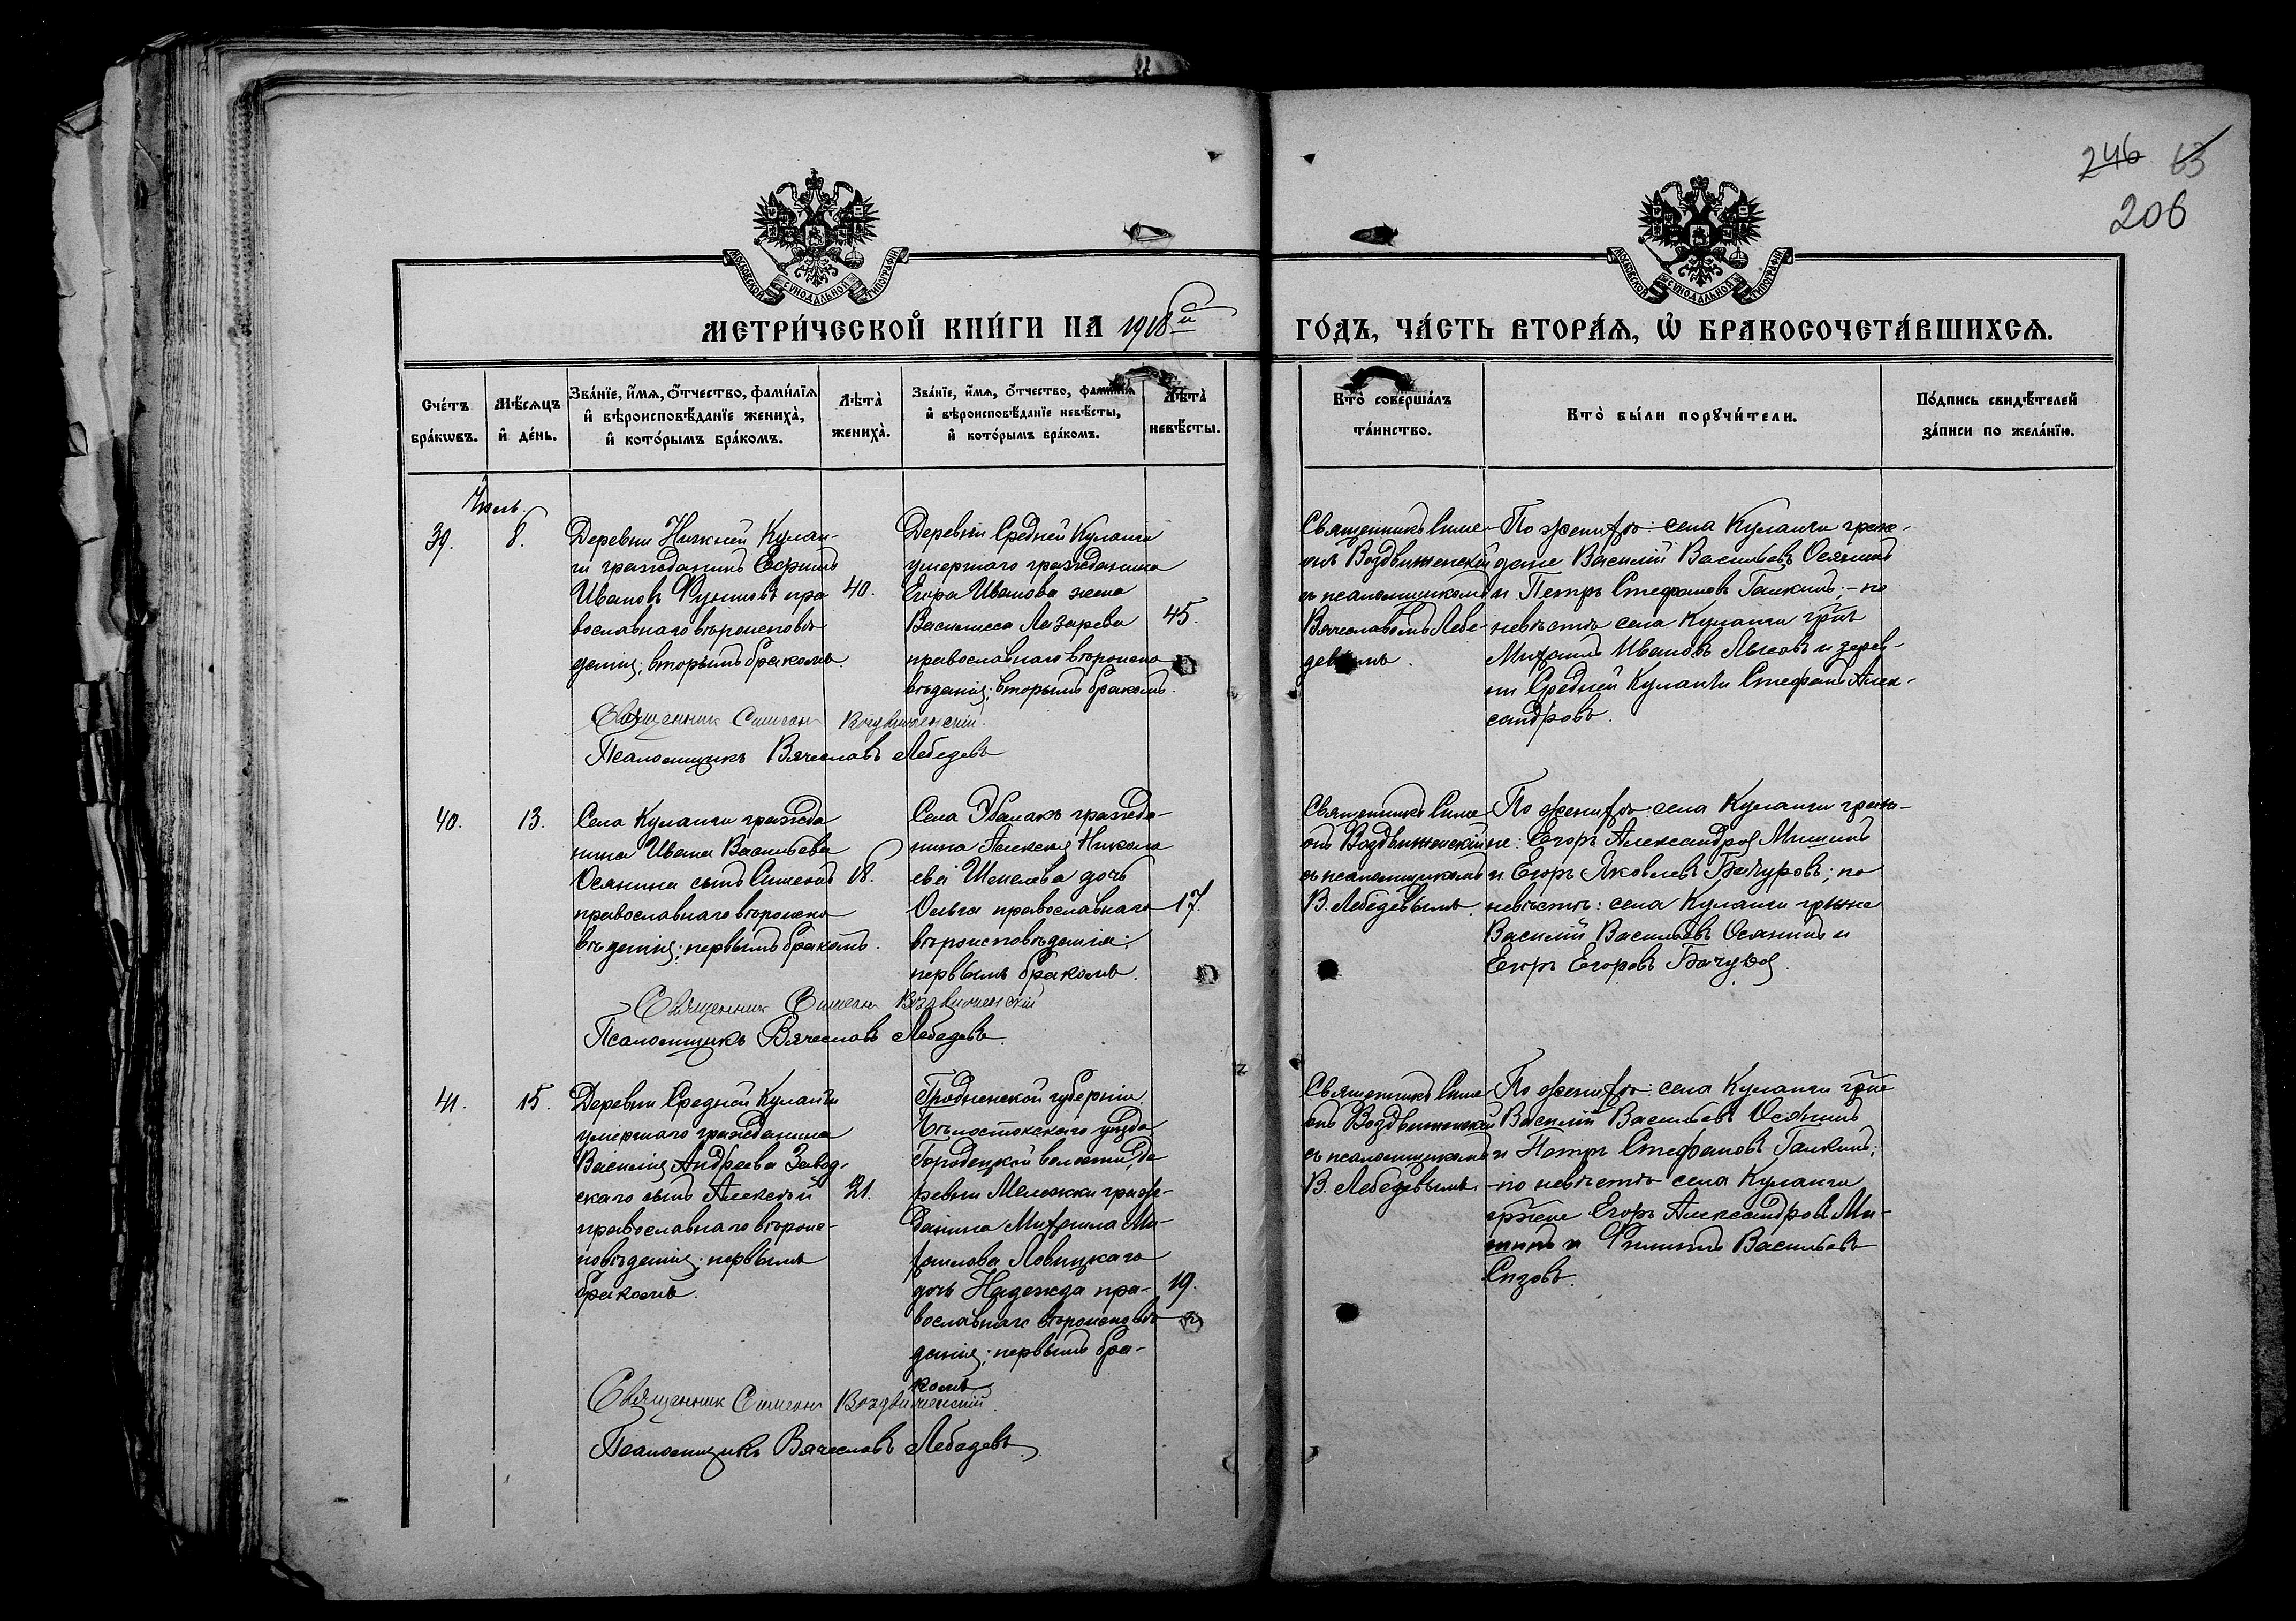 246 63
206
МОСКОВСКОЙ СѴНОДАЛЬНОЙ ТИПОГРАФІИ
МОСКОВСКОЙ СѴНОДАЛЬНОЙ ТИПОГРАФІИ
МЕТРИ́ЧЕСКОЙ КНИ́ГИ НА 1918й
ГО́ДЪ, ЧА́СТЬ ВТОРА́Я, Ѽ БРАКОСОЧЕТА́ВШИХСЯ.
Сче́тъ бра́кѡвъ.
Мѣ́сяцъ и де́нь.
Зва́нїе, и́мя, о́тчество, фами́лїя
и вѣроисповѣ́данїе жениха̀,
и кото́рымъ бра́комъ.
Лѣта̀ жениха̀.
Зва́нїе, и́мя, о́тчество, фами́лїя
и вѣроисповѣ́данїе невѣ́сты,
и кото́рымъ бра́комъ.
Лѣта̀ невѣ́сты.
Кто̀ соверша́лъ
та́инство.
Кто̀ бы́ли порꙋчи́тели.
По́дпись свидѣ́телей
за́писи по жела́нїю.
39.
8.
Деревни Нижней Кулан-
ги гражданинъ
Ивановъ пра
вославнаго вѣроисповѣ
данія; вторымъ бракомъ.
40.
Деревни Средней Куланги
умершаго гражданина
Егора Иванова жена
Василисса Лазарева
православнаго вѣроиспо
вѣданія; вторымъ бракомъ.
45.
Священникъ Симе-
онъ Воздвиженскій
съ псаломщикомъ
Вячеславомъ Лебе-
девымъ.
По женихѣ: села Куланги граж-
дане Василій Васильевъ Осянинъ
и Петръ Стефановъ Галкинъ; – по
невѣстѣ села Куланги
Михаилъ Ивановъ и дерев-
ни Средней Куланги Стефанъ Алек-
сандровъ.
Священникъ Симеонъ Воздвиженскій.
Псаломщикъ Вячеславъ Лебедевъ
40.
13.
Села Куланги гражда
нина Ивана Васильева
Осянина сынъ Симеонъ
православнаго вѣроиспо
вѣданія; первымъ бракомъ.
18.
Села Эбалакъ гражда-
нина Алексѣя Никола
ева Шепелева дочь
Ольга православнаго
вѣроисповѣданія;
первымъ бракомъ.
17.
Священникъ Симе
онъ Воздвиженскій
съ псаломщикомъ
В. Лебедевымъ.
По женихѣ: села Куланги гражда-
не: Егоръ Александровъ Мишинъ
и Егоръ Яковлевъ Бачуровъ; по
невѣстѣ: села Куланги
Василій Васильевъ Осянинъ и
Егоръ Егоровъ
Священникъ Симеонъ Воздвиженскій
Псаломщикъ Вячеславъ Лебедевъ.
41.
15.
Деревни Средней Куланги
умершаго гражданина
Василія Андреева Завод-
скаго сынъ Алексѣй
православнаго вѣроис-
повѣданія; первымъ
бракомъ.
21.
Гродненской губерніи
Бѣлостокскаго уѣзда
Городецкой волости, де
ревни Мележки граж-
данина Михаила Ми-
хаилова Ловицкаго
дочь Надежда пра-
вославнаго вѣроисповѣ
данія; первымъ бра-
комъ
19.
Священникъ Симе
онъ Воздвиженскій
съ псаломщикомъ
В. Лебедевымъ.
По женихѣ: села Куланги
Василій Васильевъ Осянинъ
и Петръ Стефановъ Галкинъ;
– по невѣстѣ села Куланги
Егоръ Александровъ Ми-
шинъ и Филиппъ Васильевъ
Сизовъ.
Священникъ Симеонъ Воздвиженскій.
Псаломщикъ Вячеславъ Лебедевъ.